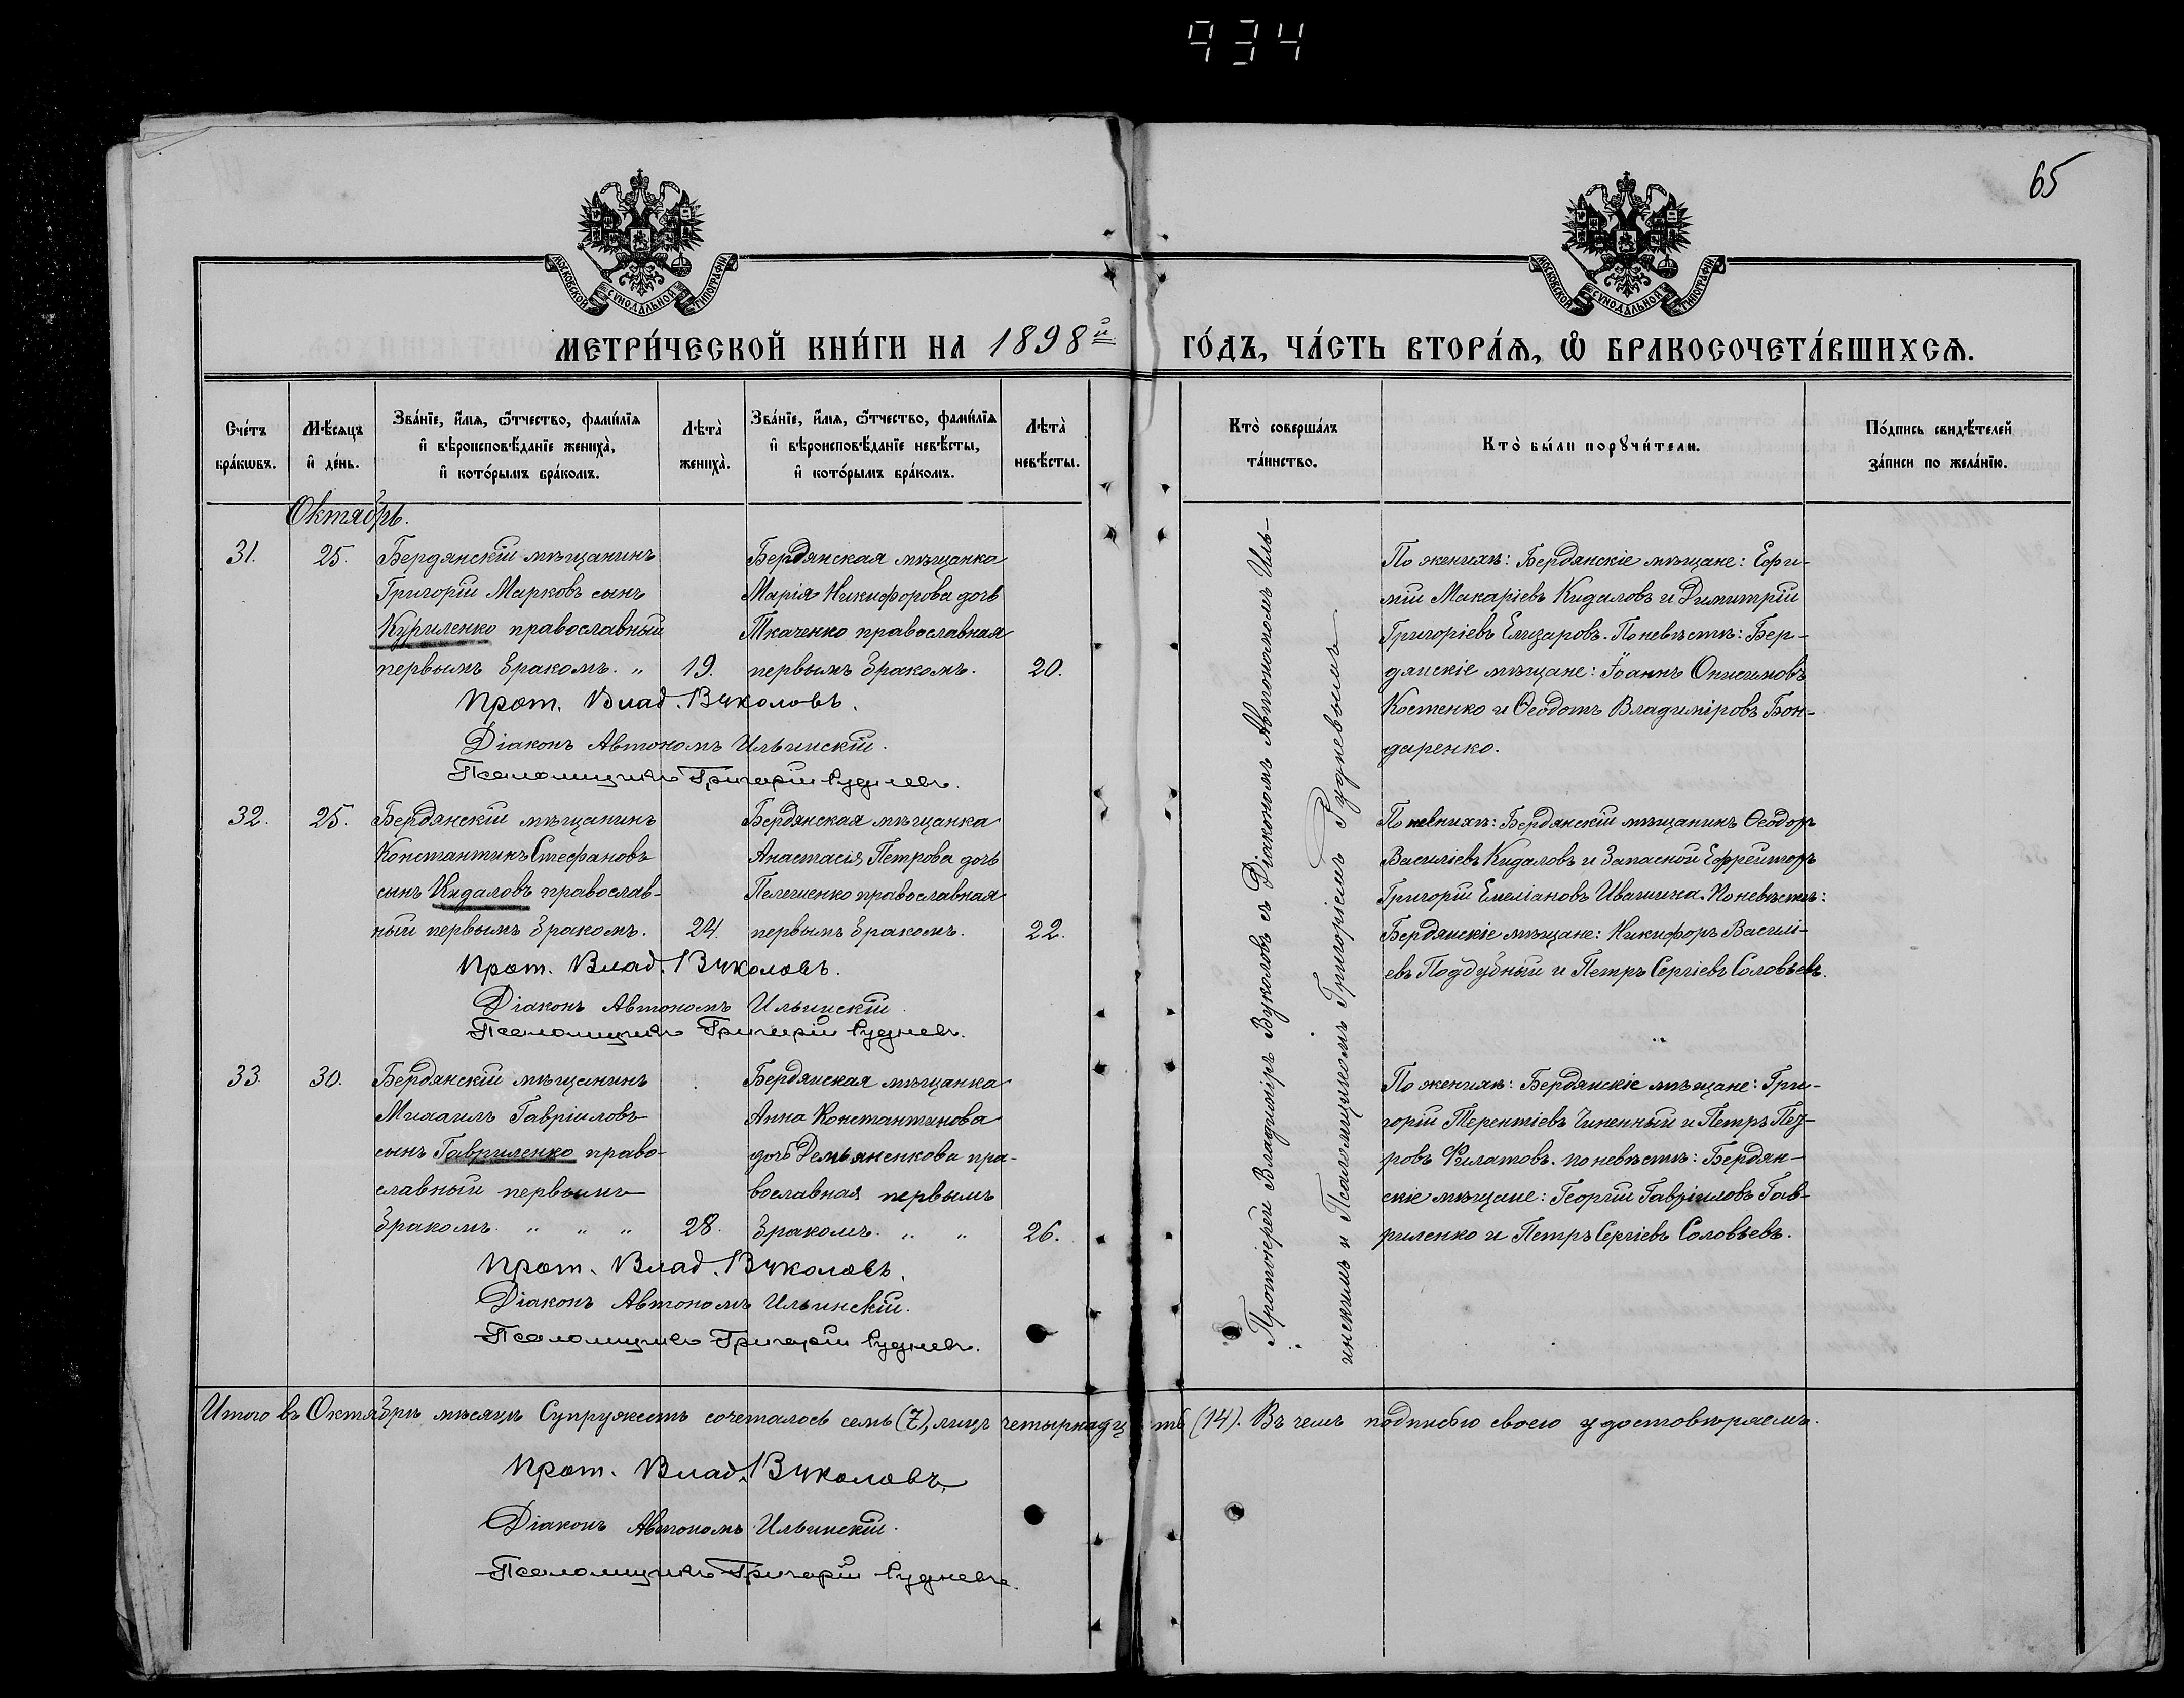 934
65
МОСКОВСКОЙ СѴНОДАЛЬНОЙ ТИПОГРАФІИ
МОСКОВСКОЙ СѴНОДАЛЬНОЙ ТИПОГРАФІИ
МЕТРИ́ЧЕСКОЙ КНИ́ГИ НА 1898й
ГО́ДЪ, ЧА́СТЬ ВТОРА́Ѧ, Ѽ БРАКОСОЧЕТА́ВШИХСѦ.
Сче́тъ бра́кѡвъ.
Мѣ́сяцъ и҆ де́нь.
Зва́нїе, и҆́мѧ, ѻ҆́тчество, фами́лїѧ и҆ вѣроисповѣ́данїе жениха̀, и҆ кото́рымъ бра́комъ.
Лѣта̀ жениха̀.
Зва́нїе, и҆́мѧ, ѻ҆́тчество, фами́лїѧ и҆ вѣроисповѣ́данїе невѣ́сты, и҆ кото́рымъ бра́комъ.
Лѣта̀ невѣ́сты.
Кто̀ соверша́лъ та́инство.
Кто̀ бы́ли порꙋчи́тели.
По́дпись свидѣ́телей за́писи по жела́нїю.
Октябрь.
31.
25.
Бердянскій мѣщанинъ
Григорій Марковъ сынъ
Куриленко православный
первымъ бракомъ. „
19.
Бердянская мѣщанка
Марія Никифорова дочь
Ткаченко православная
первымъ бракомъ.
20.
По женихѣ: Бердянскіе мѣщане: Ефи-
мій Макаріевъ Кидаловъ и Димитрій
Григоріевъ Елизаровъ. По невѣстѣ: Бер-
дянскіе мѣщане: Іоаннъ Онисимовъ
Костенко и Ѳеодотъ Владиміровъ Бон-
даренко.
Прот. Влад. Вуколовъ.
Діаконъ Автономъ Ильинскій.
Псаломщикъ Григорій Рудневъ.
32.
25.
Бердянскій мѣщанинъ
Константинъ Стефановъ
сынъ Кидаловъ православ-
ный первымъ бракомъ.
24.
Бердянская мѣщанка
Анастасія Петрова дочь
православная
первымъ бракомъ.
22.
По женихѣ: Бердянскій мѣщанинъ Ѳеодоръ
Василіевъ Кидаловъ и Запасной Ефрейторъ
Григорій Емеліановъ По невѣстѣ:
Бердянскіе мѣщане: Никифоръ Василі-
евъ Поддубный и Петръ Сергіевъ Соловьевъ.
Прот. Влад. Вуколовъ.
Діаконъ Автономъ Ильинскій.
Псаломщикъ Григорій Рудневъ.
33.
30.
Бердянскій мѣщанинъ
Михаилъ Гавріиловъ
сынъ Гавриленко право-
славный первымъ
бракомъ. „ „ „
28.
Бердянская мѣщанка
Анна Константинова
дочь Демьяненкова пра-
вославная первымъ
бракомъ. „ „
26.
По женихѣ: Бердянскіе мѣщане: Гри-
горій Терентіевъ и Петръ Пет-
ровъ Филатовъ. по невѣстѣ: Бердян-
скіе мѣщане: Георгій Гавріиловъ Гав-
риленко и Петръ Сергіевъ Соловьевъ.
Прот. Влад. Вуколовъ.
Діаконъ Автономъ Ильинскій.
Псаломщикъ Григорій Рудневъ.
Протоіерей Владиміръ Вуколовъ съ Діакономъ Автономомъ Иль-
инскимъ и Псаломщикомъ Григоріемъ Рудневымъ
Итого въ Октябрѣ мѣсяцѣ Супружествъ сочеталось семь (7), лицъ четырнадц ть (14). Въ чемъ подписью своею удостовѣряемъ.
Прот. Влад. Вуколовъ.
Діаконъ Автономъ Ильинскій.
Псаломщикъ Григорій Рудневъ.